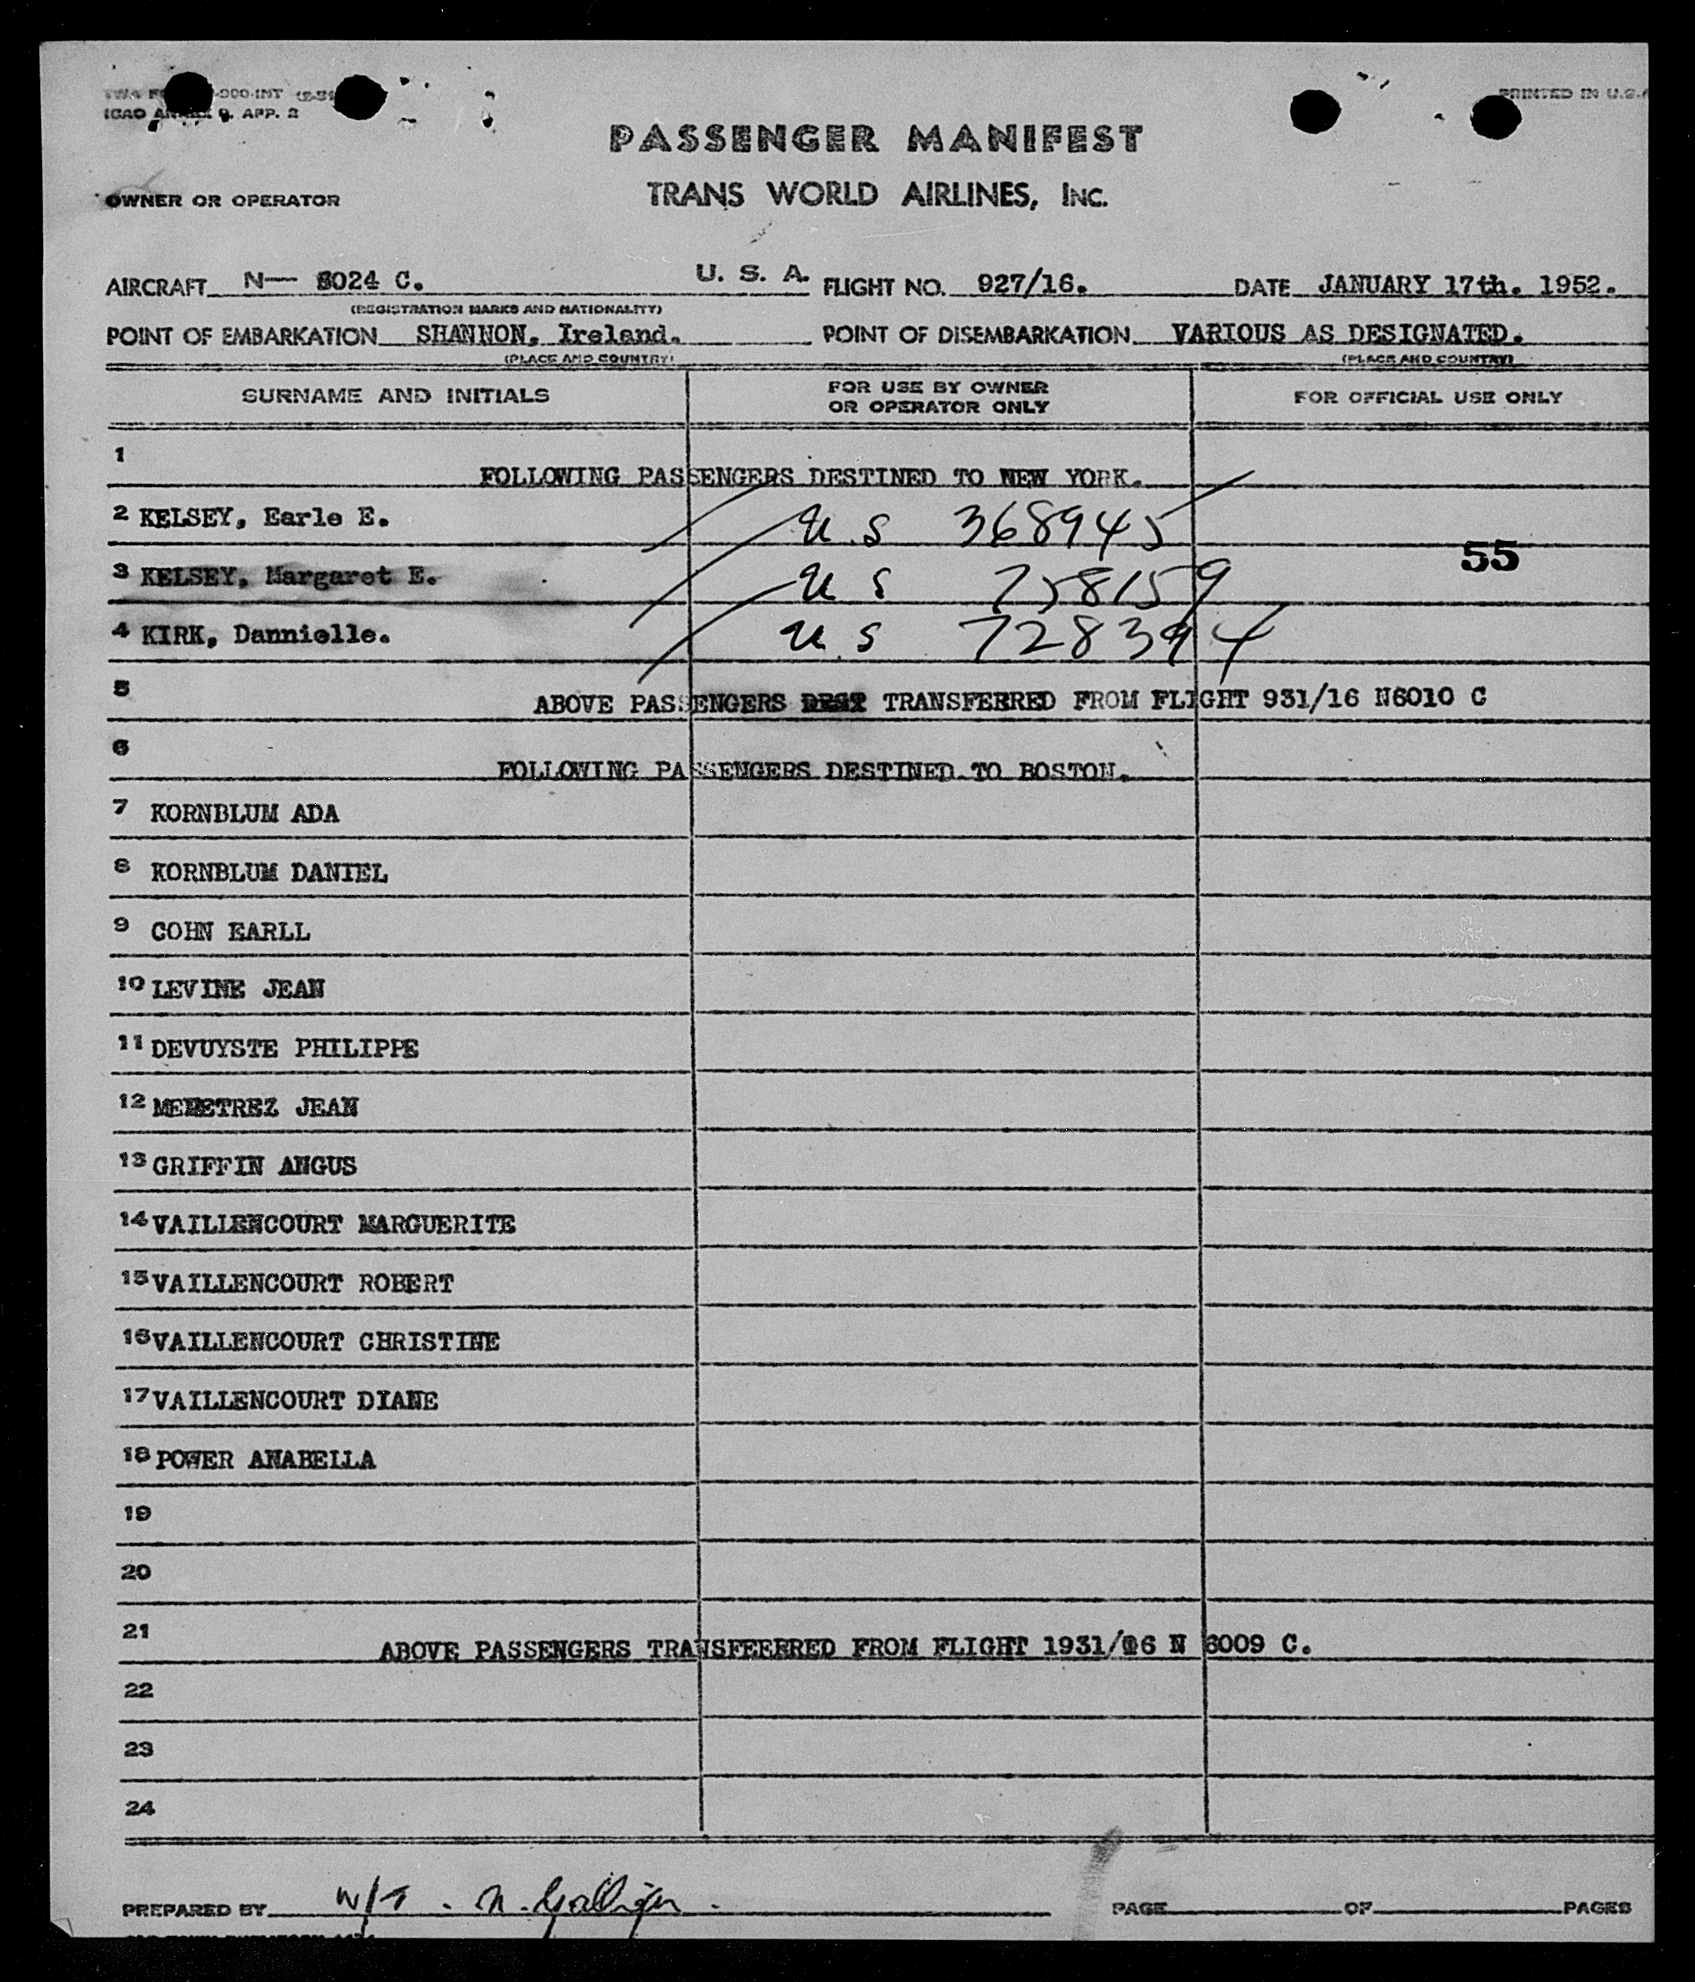 ICAO ANNEX 9, APP. 2
PRINTED IN U.S.A
PASSENGER MANIFEST
OWNER OR OPERATOR
TRANS WORLD AIRLINES, INC.
AIRCRAFT N— 6024 C. U. S. A. FLIGHT NO. 927/16. DATE JANUARY 17th. 1952.
(REGISTRATION MARKS AND NATIONALITY)
POINT OF EMBARKATION SHANNON, Ireland. POINT OF DISEMBARKATION VARIOUS AS DESIGNATED.
(PLACE AND COUNTRY) (PLACE AND COUNTRY)
SURNAME AND INITIALS FOR USE BY OWNER OR OPERATOR ONLY FOR OFFICIAL USE ONLY
1 FOLLOWING PASSENGERS DESTINED TO NEW YORK.
2 KELSEY, Earle E. U.S 368945
55
3 KELSEY, Margaret E. U S 758159
4 KIRK, Dannielle. U.S 728394
5 ABOVE PASSENGERS TRANSFERRED FROM FLIGHT 931/16 N6010 C
6 FOLLOWING PASSENGERS DESTINED TO BOSTON.
7 KORNBLUM ADA
8 KORNBLUM DANIEL
9 COHN EARLL
10 LEVINE JEAN
11 DEVUYSTE PHILIPPE
12 MENETREZ JEAN
13 GRIFFIN ANGUS
14 VAILLENCOURT MARGUERITE
15 VAILLENCOURT ROBERT
16 VAILLENCOURT CHRISTINE
17 VAILLENCOURT DIANE
18 POWER ANABELLA
19
20
21 ABOVE PASSENGERS TRANSFEERRED FROM FLIGHT 1931/16 N 6009 C.
22
23
24
PREPARED BY W/T . N. PAGE OF PAGES